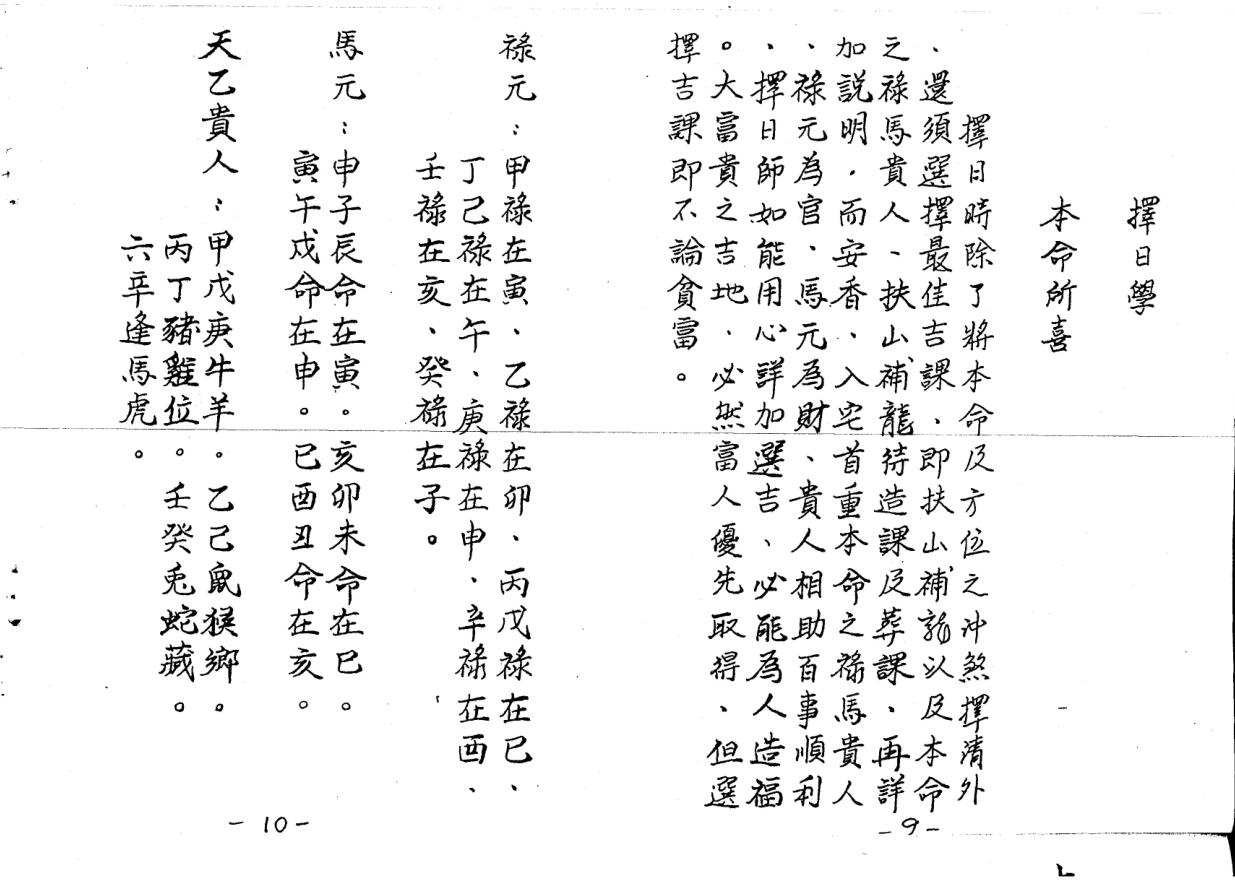 擇日學
本命所喜
擇日時除了將本命及方位之沖煞擇清外
、還須選擇最佳吉課、即扶山補龍以及本命
之祿馬貴人、扶山補龍待造課及葬課、再詳
加説明．而安香、入宅首重本命之祿馬貴人
、祿元為官、馬元為財、貴人相助百事順利
、擇日師如能用心詳加選吉、必能為人造福
。大富貴之吉地、必然富人優先取得、但選
擇吉課即不論貧富。
祿元：甲祿在寅、乙祿在卯、丙戊祿在巳、
丁己祿在午、庚祿在申、辛祿在酉、
壬祿在亥、癸祿在子。
馬元：申子辰命在寅。亥卯未命在巳。
寅午戌命在申。巳酉丑命在亥。
天乙貴人：甲戊庚牛羊。乙己鼠猴鄉。
丙丁豬雞位。壬癸兎蛇藏。
六辛逢馬虎。
-9-
-10-